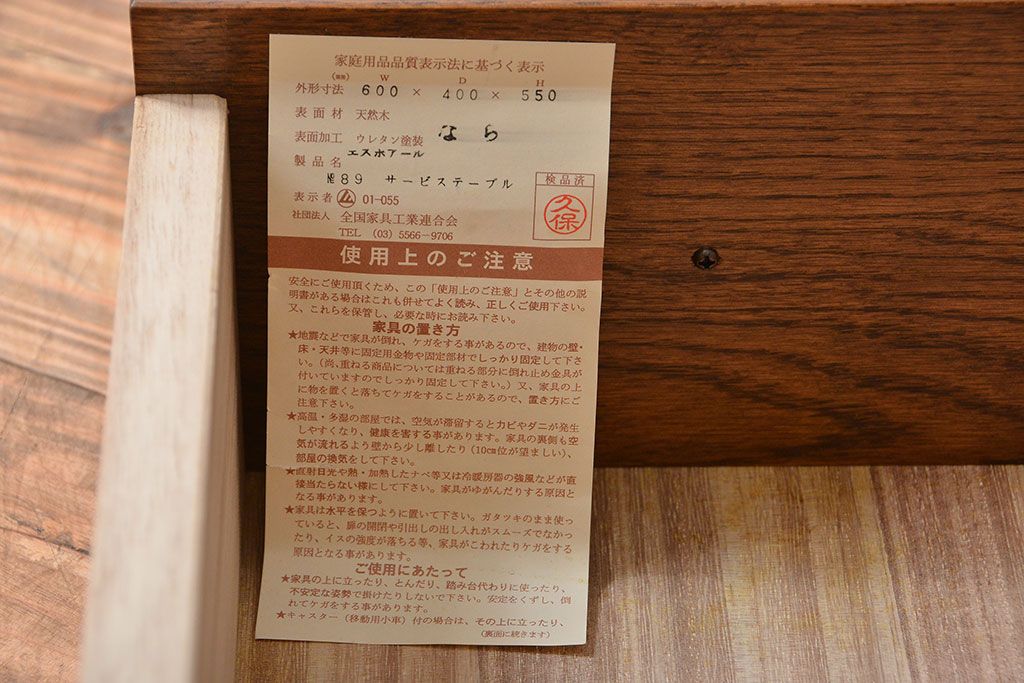 家庭用品品質表示法に基づく表示
(㎜) W D H
外形寸法 600 × 400 × 550
表面材 天然木
表面加工 ウレタン塗装 なら
製品名 エスポアール
№89 サービステーブル
表示者 01-055
社団法人 全国家具工業連合会
TEL (03) 5566-9706
検品済
久保
使用上のご注意
安全にご使用頂くため、この「使用上のご注意」とその他の説
明書がある場合はこれも併せてよく読み、正しくご使用下さい。
又、これらを保管し、必要な時にお読み下さい。
家具の置き方
★地震などで家具が倒れ、ケガをする事があるので、建物の壁・
床・天井等に固定用金物や固定部材でしっかり固定して下さ
い。(尚、重ねる商品については重ねる部分に倒れ止め金具が
付いていますのでしっかり固定して下さい。)又、家具の上
に物を置くと落ちてケガをすることがあるので、置き方にご
注意下さい。
★高温・多湿の部屋では、空気が滞留するとカビやダニが発生
しやすくなり、健康を害する事があります。家具の裏側も空
気が流れるよう壁から少し離したり(10㎝位が望ましい)、
部屋の換気をして下さい。
★直射日光や熱・加熱したナベ等又は冷暖房器の強風などが直
接当たらない様にして下さい。家具がゆがんだりする原因と
なる事があります。
★家具は水平を保つように置いて下さい。ガタツキのまま使っ
ていると、扉の開閉や引出しの出し入れがスムーズでなかっ
たり、イスの強度が落ちる等、家具がこわれたりケガをする
原因となる事があります。
ご使用にあたって
★家具の上に立ったり、とんだり、踏み台代わりに使ったり、
不安定な姿勢で掛けたりしないで下さい。安定をくずし、倒
れてケガをする事があります。
★キャスター(移動用小車)付の場合は、その上に立ったり、
(裏面に続きます)